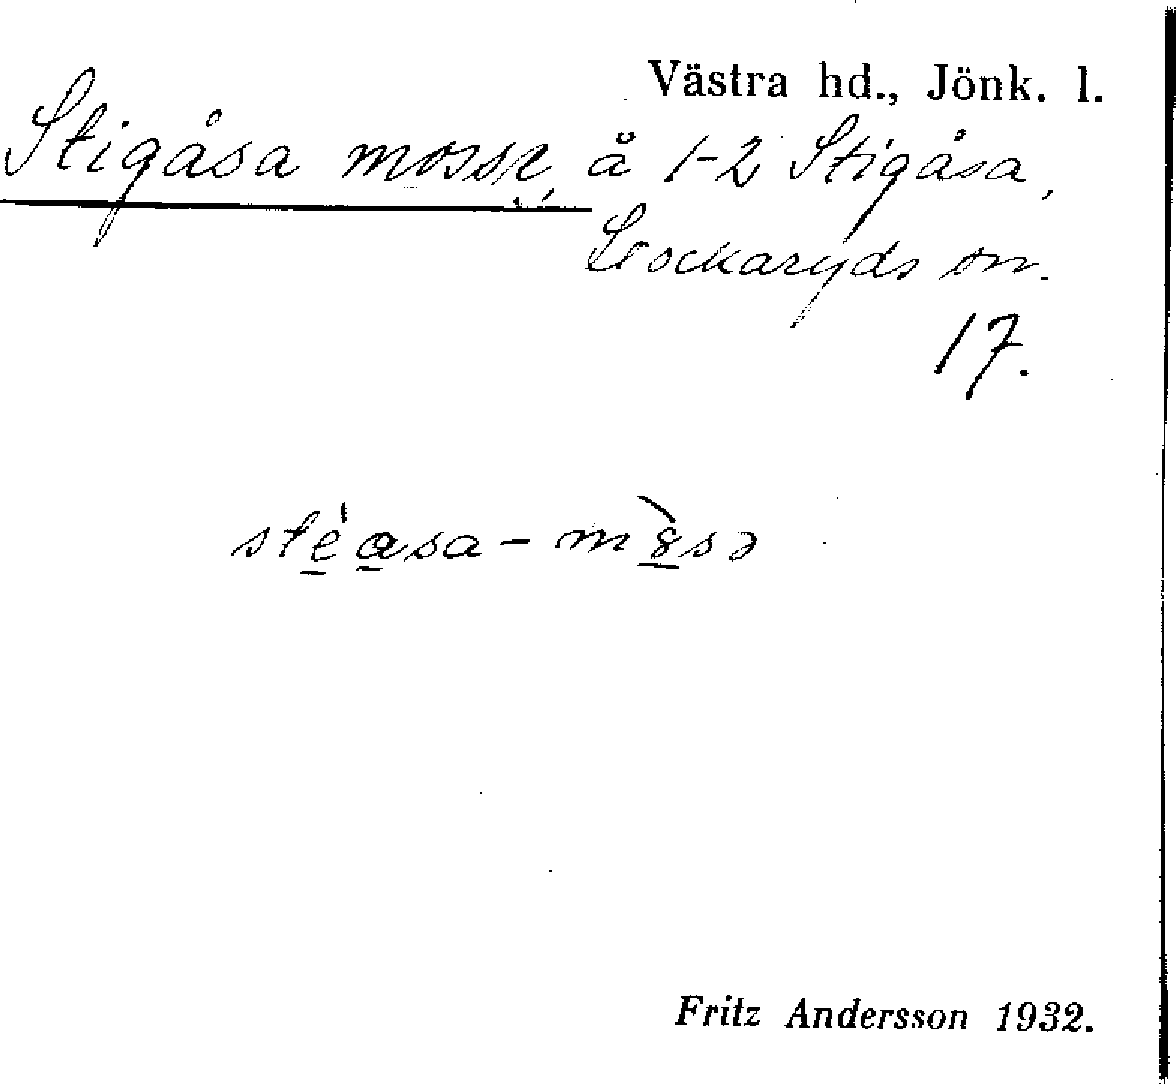 Västra hd., Jönk. l.
Stigåsa mosse, å 1-2 Stigåsa,
Stockaryds sn.
17.
stèasa-mòsə
Fritz Andersson 1932.